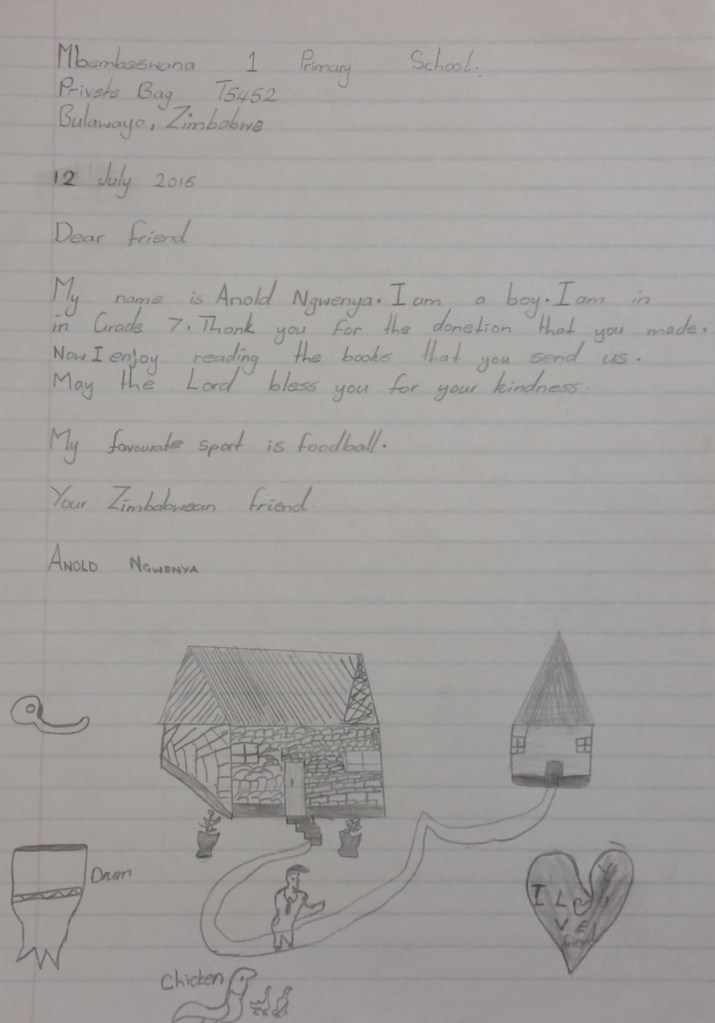 Mbembeswana 1 Primary School.
Private Bag T5452
Bulawayo, Zimbabwe
12 July 2016
Dear friend
My name is Anold Ngwenya. I am a boy. I am in
in Grade 7. Thank you for the donetion that you made.
Now I enjoy reading the books that you send us.
May the Lord bless you for your kindness.
My favourate sport is foodball.
Your Zimbabwean friend.
ANOLD NGWENYA
Drum
I LOVE
friend
Chicken